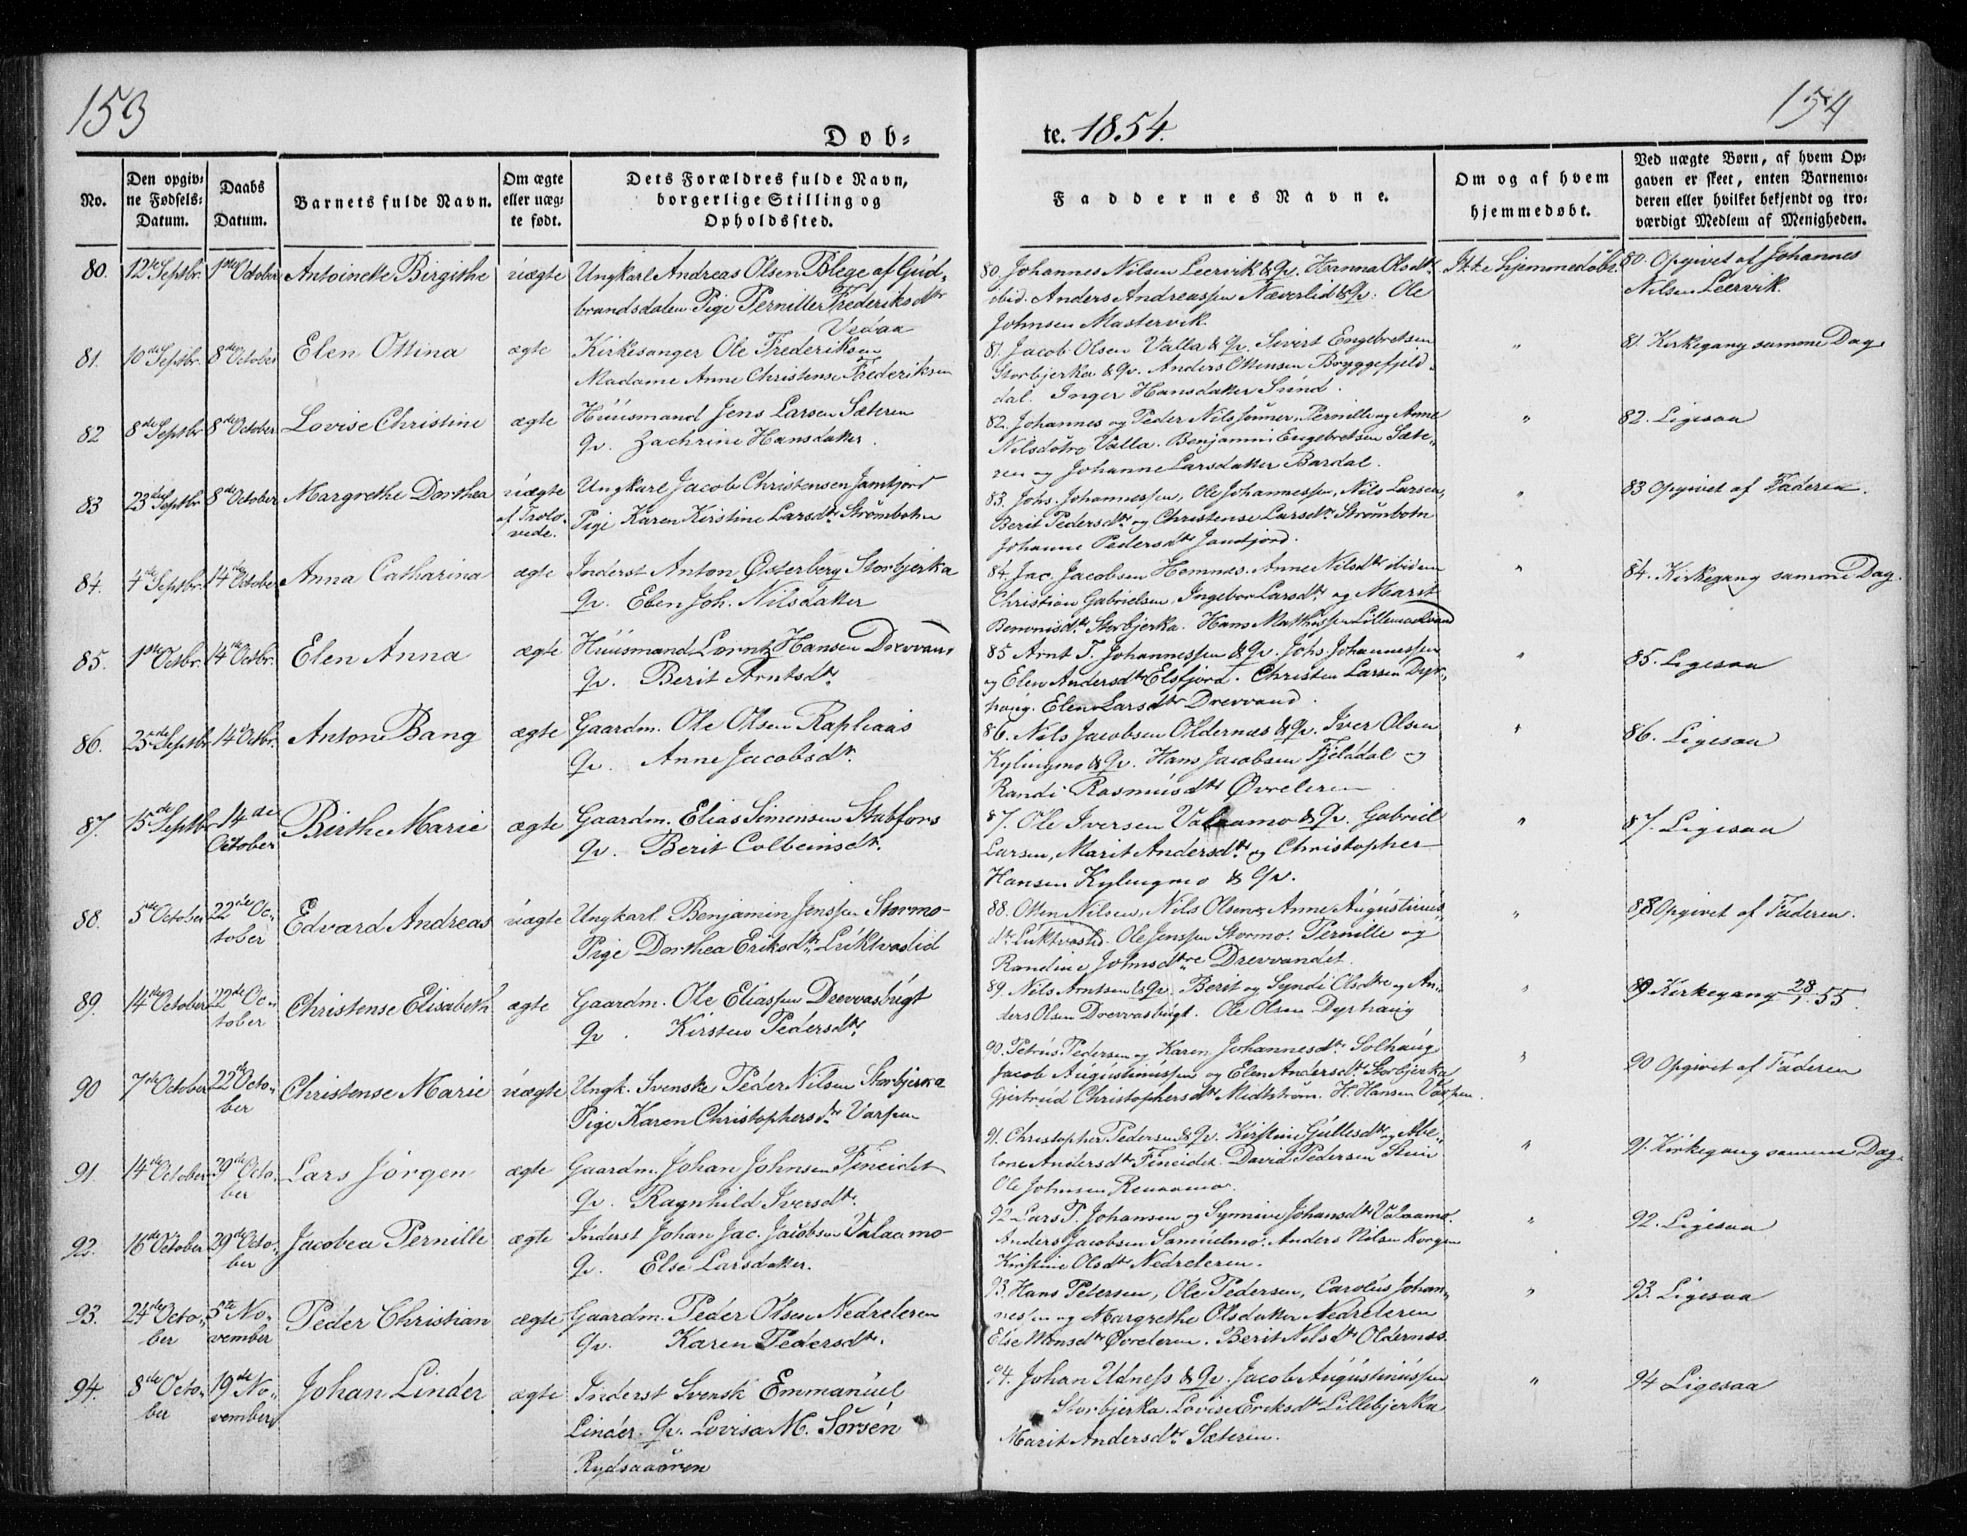 153
Døb-
No.
Den opgiv-
ne Fødsels-
Datum.
Daabs
Datum.
Barnets fulde Navn.
Om ægte
eller uæg-
te født.
Dets Forældres fulde Navn,
borgerlige Stilling og
Opholdssted.
80. 12te Septbr. 1ste October Antoinette Birgithe uægte Ungkarl Andreas Olsen Blege af Gud-
brandsdalen Pige Pernille Frederiksdtr
Vedaa
81. 10de Septbr. 8de October Elen Ottina ægte Kirkesanger Ole Frederiksen
Madame Anne Christense Frederiksen
82 8de Septbr 8de October Lovise Christine ægte Huusmand Jens Larsen Sæteren
Qv. Zachrine Hansdatter.
83 23de Septbr 8de October Margrethe Dorthea uægte Ungkarl Jacob Christensen Jamtjord
af Trolo-
vede.
Pige Karen Kirstine Larsdtr Strømbotn
84. 4de Septbr. 14de October Anna Catharina ægte Inderst Anton Østerberg Storbjerka
Qv. Elen Joh. Nilsdatter
85. 1ste Octbr. 14de Octbr. Elen Anna ægte Huusmand Lorntz Hansen Drevvand
Qv. Berit Arntsdtr
86. 23de Septbr 14de Octbr. Antone Bang ægte Gaardm. Ole Olsen Rapliaas
Qv. Anne Jacobsdtr.
87. 15de Septbr 14de
October Birthe Marie ægte Gaardm. Elias Simensen Stabfors
Qv. Berit Colbeinsdtr.
88. 5te October 22de Oc-
tober Edvard Andreas uægte Ungkarl Benjamin Jenssen Stormo
Pige Dorthea Eriksdtr Luktvaslid
89. 14de October 22de Oc-
tober Christense Elisabeth ægte Gaardm. Ole Eliassen Drevvasbugt
Qv. Kirsten Pedersdtr
90 7de October 22de Octo-
ber Christense Marie uægte Ungk. Svenske Peder Nilsen Storbjerka
Pige Karen Christophersdtr Varpen
91. 14de October 29de Octo-
ber Lars Jørgen ægte Gaardm. Johan Johnsen Fineidet
Qv. Ragnhild Iversdtr.
92. 16de October 29de Octo-
ber Jacobea Pernille ægte Inderst Johan Jac. Jacobsen Valaamo
Qv. Else Larsdatter.
93. 24de Octo-
ber 5te No-
vember Peder Christian ægte Gaardm. Peder Olsen Nedreleren
Qv. Karen Pedersdtr.
94. 8de Octo-
ber 19de No-
vember Johan Linder ægte Inderst Svensk Emmanuel
Linder. Qv. Lovisa M. Sørsén
Rydsaaøren
154
te. 1854.
Faddernes Navne.
Om og af hvem
hjemmedøbt.
Ved uægte Børn, af hvem Op-
gaven er skeet, enten Barnemo-
deren eller hvilket bekjendt og tro-
værdigt Medlem af Menigheden.
80. Johannes Nilsen Leervik & Qv. Hanna Olsdtr. Ikke hjemmedøbt. 80. Opgivet af Johannes
ibid. Anders Andreassen Næverlid & Qv. Ole Nilsen Leervik.
Johnsen Mastervik.
81. Jacob Olsen Valla & Qv. Sivert Engebretsen " 81. Kirkegang samme Dag.
Storbjerka & Qv. Anders Ottensen Bryggefjeld-
dal. Inger Hansdatter Sund.
82. Johannes og Peder Nilssønner, Pernille og Anne " 82. Ligesaa
Nilsdøtre Valla. Benjamin Engebretsen Sæte-
ren og Johanne Larsdatter Bardal.
83. Johs. Johannessen, Ole Johannessen, Nils Larsen, " 83 Opgivet af Faderen.
Berit Pedersdtr og Christense Larsdtr Strømbotn
Johanne Pedersdtr Jamtjord.
84. Jac. Jacobsen Hemnes. Anne Nilsdtr ibidem " 84. Kirkegang samme Dag.
Christian Gabrielsen, Ingebor Larsdtr og Marit
Benonisdtr. Storbjerka. Hans Mathissen
85 Arnt T. Johannessen & Qv. Johs. Johannessen " 85. Ligesaa
og Elen Andersdtr Elsfjord. Christen Larsen Dyr-
haug. Elen Larsdtr Drevvand.
86. Nils Jacobsen Oldernæs & Qv. Iver Olsen " 86. Ligesaa
Kylingmo & Qv. Hans Jacobsen Fjelddal og
Randi Rasmusdtr Øvreleren
87. Ole Iversen Valaamo & Qv. Gabriel " 87. Ligesaa
Larsen, Marit Andersdtr og Christopher
Hansen Kylingmo & Qv.
88. Otten Nilsen, Nils Olsen, Anne Augustinus- " 88 Opgivet af Faderen.
dtr. Luktvaslid. Ole Jenssen Stormo. Pernille og
Randine Johnsdtre Drevvandet.
89. Nils Arntsen & Qv. Berit og Syndi Olsdtre og An- " 89 Kirkegang 28/1 55.
ders Olsen Drevvasbugt. Ole Olsen Dyrhaug
90. Petrus Pedersen og Karen Johannesdtr. Solhaug " 90 Opgivet af Faderen
Jacob Augustinussen og Elen Andersdtr Storbjerka
Gjertrud Christophersdtr Midtstrøm. H. Hansen Varpen.
91. Christopher Pedersen & Qv. Kirstine Gullesdtr og Abe- " 91. Kirkegang samme Dag.
lone Andersdtr Fineidet. David Pedersen Stein
Ole Johnsen Renaamo.
92 Lars P. Johansen og Synnive Johansdtr Valaamo. " 92. Ligesaa
Anders Jacobsen Samuelmo. Anders Nilsen Korgen
Kirstine Olsdtr Nedreleren.
93. Hans Petersen, Ole Pedersen, Carolus Johan- " 93. Ligesaa
nesen og Margrethe Olsdatter Nedreleren
Else Monsdtr Øvreleren. Berit Nilsdtr Oldernæs.
94. Johan Udness & Qv. Jacob Augustinussen " 94 Ligesaa
Storbjerka. Lovise Eriksdtr Lillebjerka
Marit Andersdtr Sæteren.